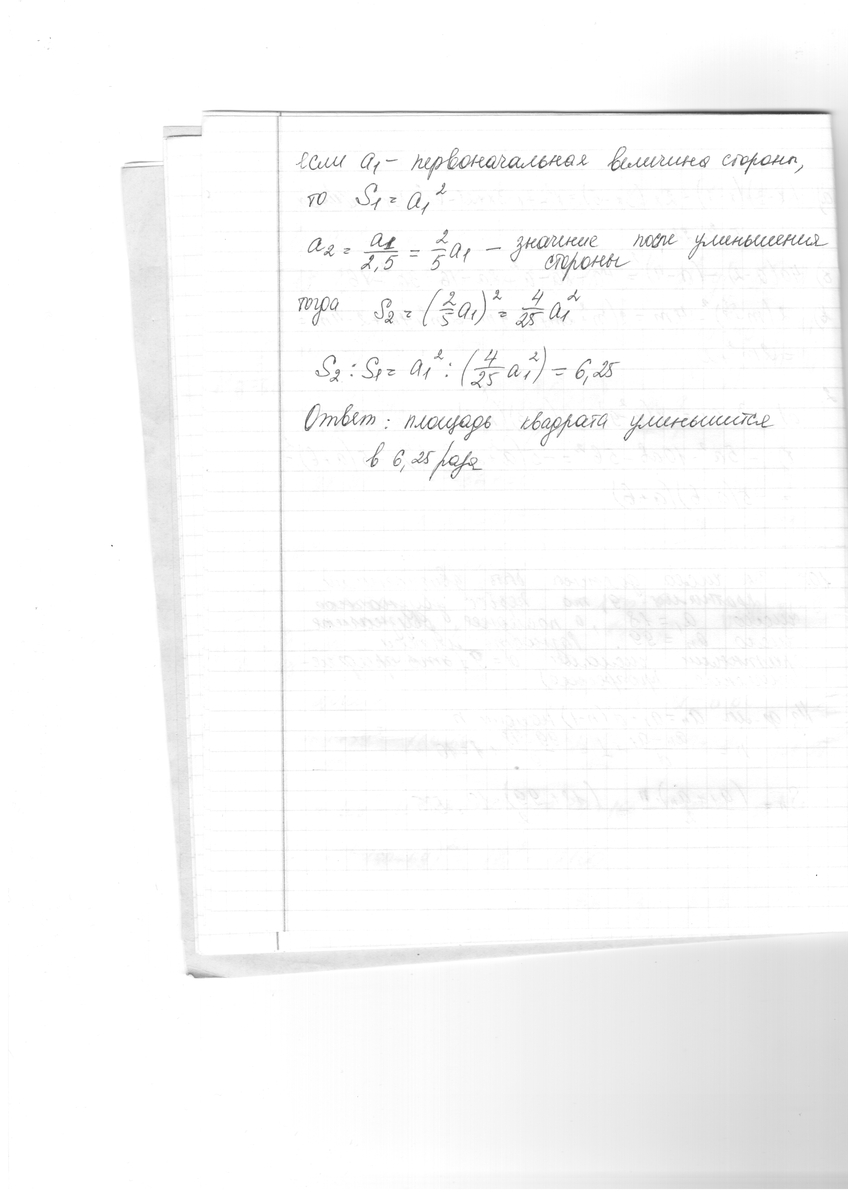 Если a₁ – первоначальная величина стороны,
то S₁ = a₁²
a₂ = a₁/2,5 = 2/5 a₁ – значение после уменьшения
стороны
тогда S₂ = (2/5 a₁)² = 4/25 a₁²
S₂ : S₁ = a₁² : (4/25 a₁²) = 6,25
Ответ: площадь квадрата уменьшится
в 6,25 раза